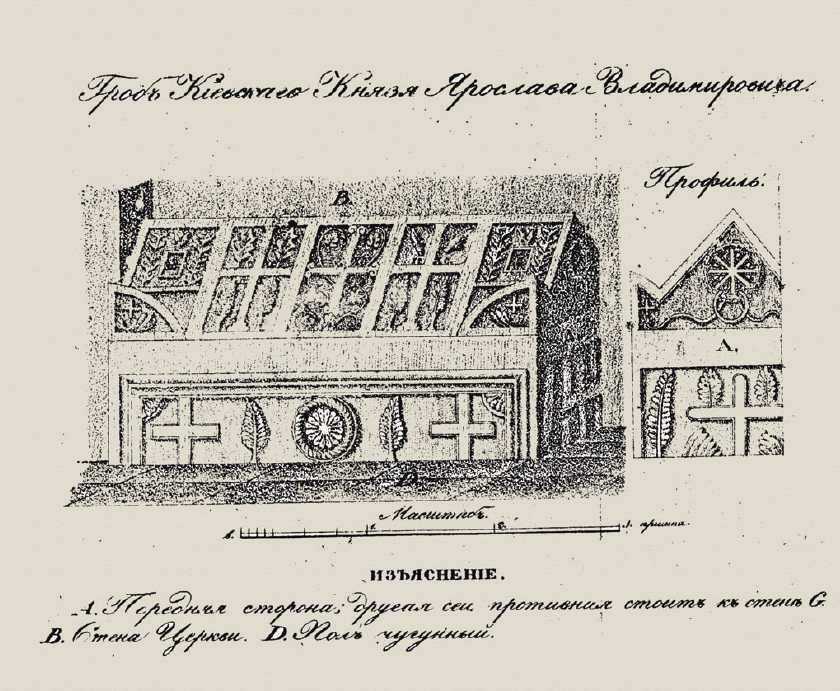 Гробъ Кіевскаго Князя Ярослава Владимировича.
Профиль.
B.
A.
D.
Масштабъ.
ИЗЪЯСНЕНІЕ.
A. Передняя сторона; другая сей противная стоитъ къ стенѣ C.
B. Стена Церкви. D. Полъ чугунный.